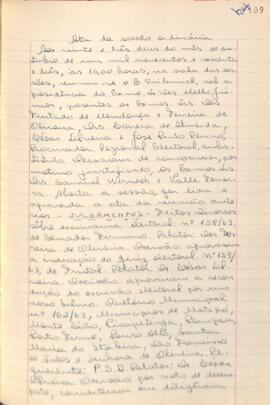 109
Ata da sessão ordinária
Aos vinte e três dias do mês de ou-
tubro de um mil novecentos e sessenta
e três, às 16,00 horas, na sala das ses-
sões, reuniu-se o Tribunal, sob a
presidência do Exmo. Sr. Des. Mello Jú-
nior, presentes os Exmos. Srs. Des.
Furtado de Mendonça e Ferreira de
Oliveira, Drs. de Almeida,
César Silveira e José Pinto Renno,
Procurador Regional Eleitoral, subs-
tituto. Deixaram de comparecer, por
motivo justificado os Exmos. Srs.
Drs. Samuel Werneck e Valle Ferrei-
ra. Aberta a sessão, foi lida e
aprovada a ata da reunião ante-
rior. - JULGAMENTOS - Feitos Diversos
sobre escrivania eleitoral nº 158/63,
de Senador Firmino. Relator: Des. Fer-
reira de Oliveira. Decisão: aprovaram
a indicação do Juiz eleitoral. Nº 159/
63, de Frutal. Relator: Dr. César Sil-
veira. Decisão: aprovaram a recon-
dução do escrivão eleitoral por um
novo biênio. Diretório Municipal
nº 162/63, Municípios de Matipó,
Monte Sião, Pirapetinga,
Porto Firme, Ouro Fino, Santa
Maria do Itabira, São Francisco
de Sales e Senhora de Oliveira. Re-
querente: P.S.D. Relator: Dr. César
Silveira. Decisão: por voto de desem-
pate, converteram em diligência